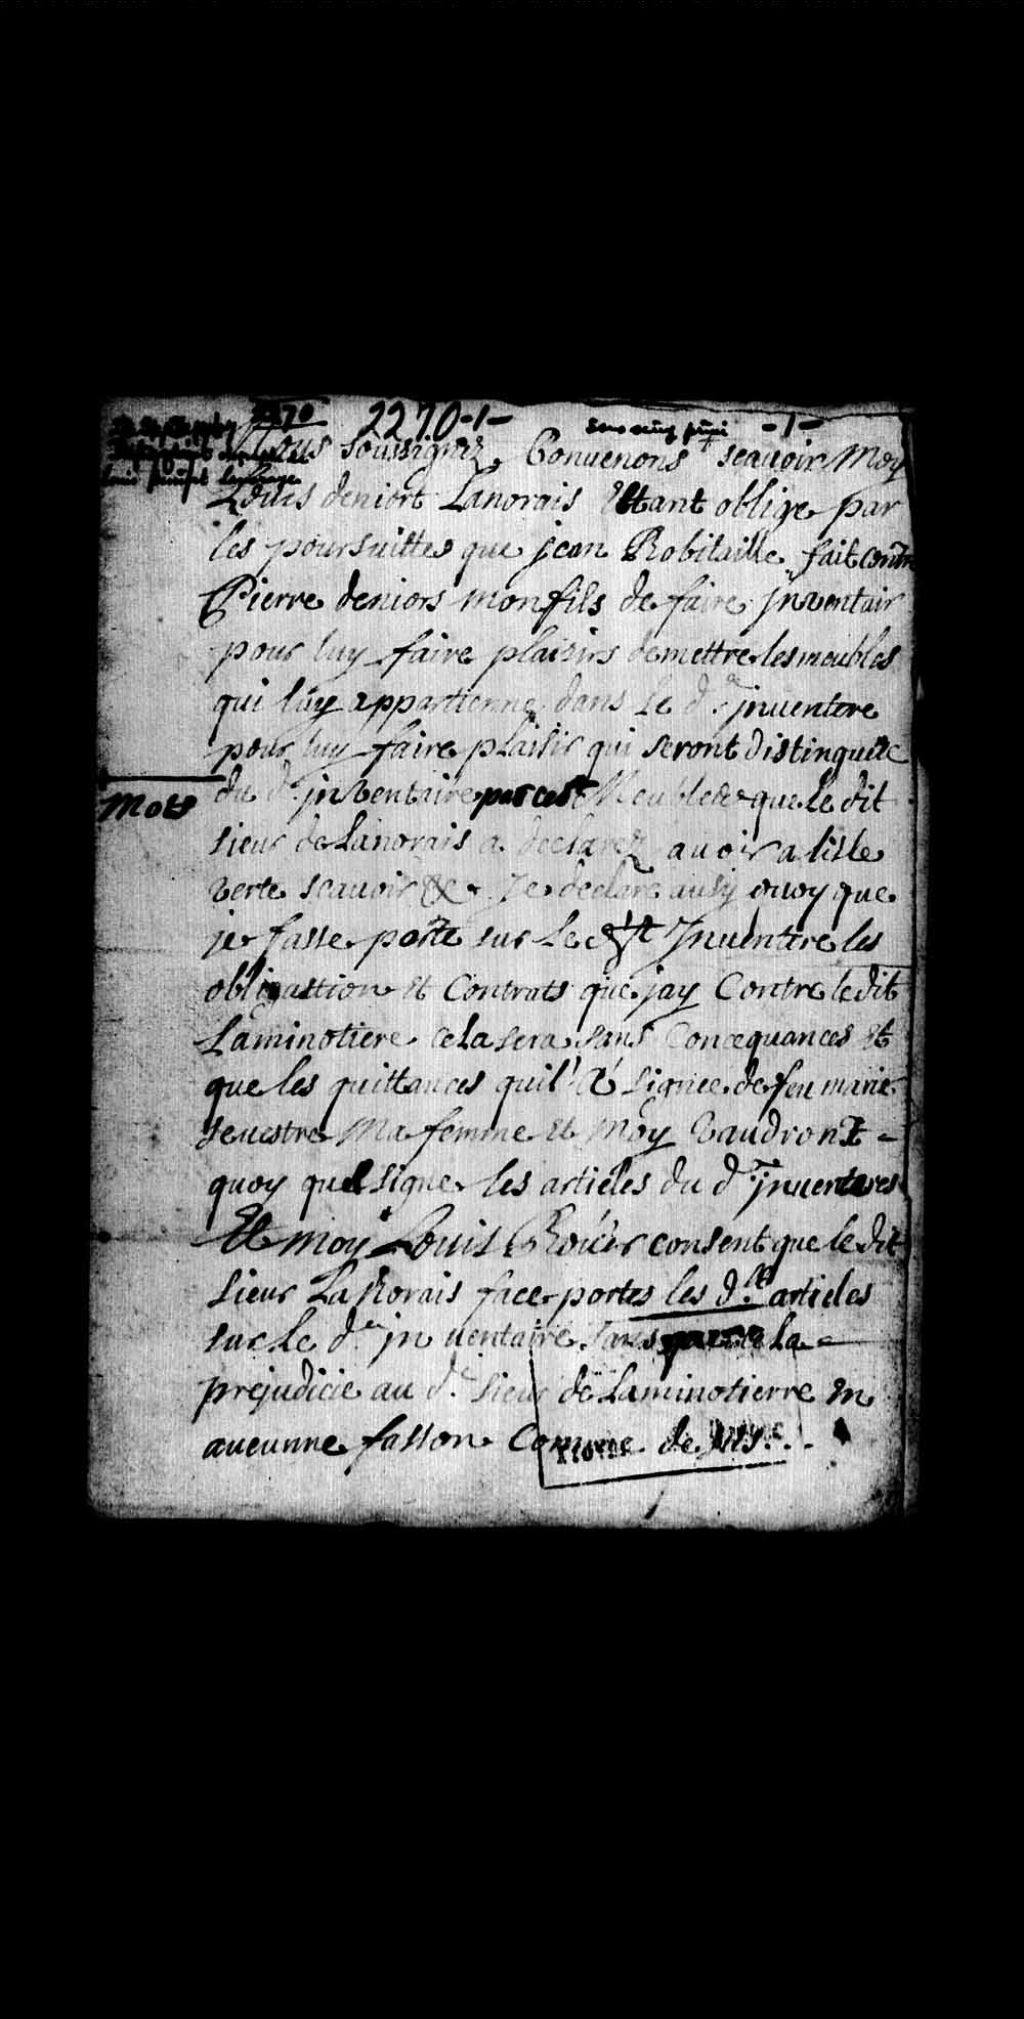 2270
2270-1-
-1-
Nous soussignez Conuenons scauoir Moy
Louis deniort Lanorais Ettant oblige par
les poursuittes que jean Robitaille fait contre
Pierre deniors mon fils de faire jnventair
pour luy faire plaisirs demettre les meubles
qui luy appartienne dans Le d.^t jnuentere
pour luy faire plaisir qui seront distinguele
du d.^t jnventaire par ces Meubles que Le dit
mots
sieur de Lanorais a declarez auoir a lisle
verte scauoir & Je declare ausy quoy que
je fasse porte sur Le dit Jnuentere les
obligattion et Contrats que jay Contre le dit
Laminotiere cela sera sans Concequances Et
que les quittances quil a signee de feu marie
seuestre Ma femme et Moy Vaudront -
quoy que signe les articles du d.^t jnuenteres
Et moy Louis Roüer consent que le dit
sieur Lanorais face portes les d.^ts articles
sur Le d.^t jn uentaire sans que cela -
prejudicie au d.^t sieur de Laminotierre en
aucunne fasson Comme de jus...